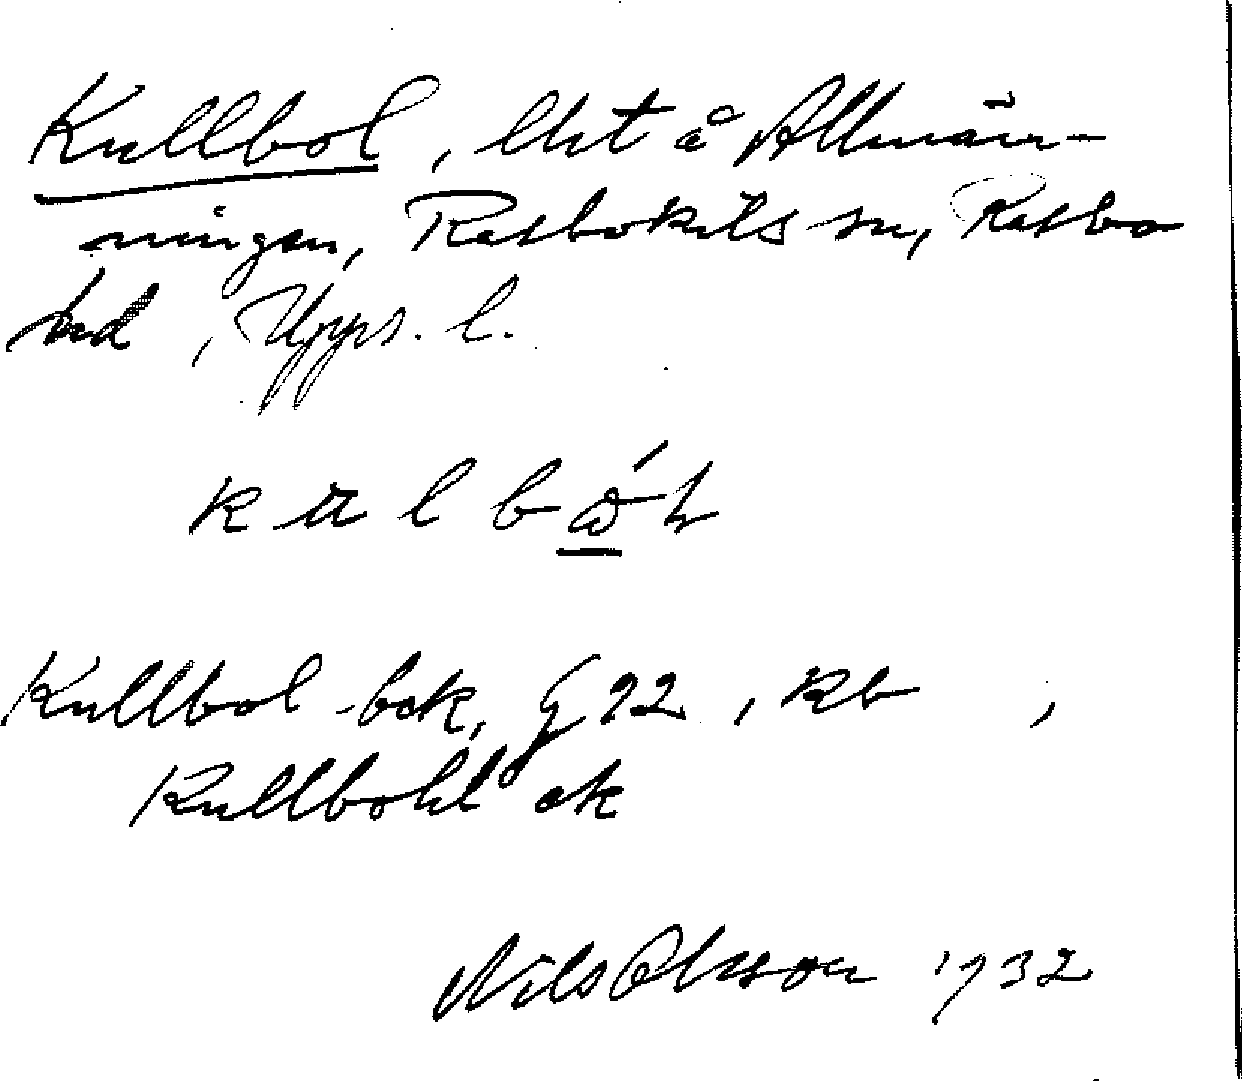 Kullbol, lht å Allmän-
ningen, Rasbokils sn, Rasbo
hd, Upps. l.
kulbó̲l
Kullbol -bok, G 22, Rb ,
Kullbohl ek
Nils Olsson 1932